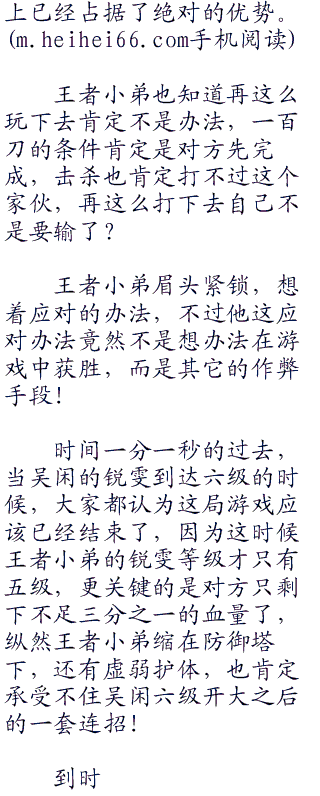 上已经占据了绝对的优势。
(m.heihei66.com手机阅读)
王者小弟也知道再这么
玩下去肯定不是办法，一百
刀的条件肯定是对方先完
成，击杀也肯定打不过这个
家伙，再这么打下去自己不
是要输了？
王者小弟眉头紧锁，想
着应对的办法，不过他这应
对办法竟然不是想办法在游
戏中获胜，而是其它的作弊
手段！
时间一分一秒的过去，
当吴闲的锐雯到达六级的时
候，大家都认为这局游戏应
该已经结束了，因为这时候
王者小弟的锐雯等级才只有
五级，更关键的是对方只剩
下不足三分之一的血量了，
纵然王者小弟缩在防御塔
下，还有虚弱护体，也肯定
承受不住吴闲六级开大之后
的一套连招！
到时